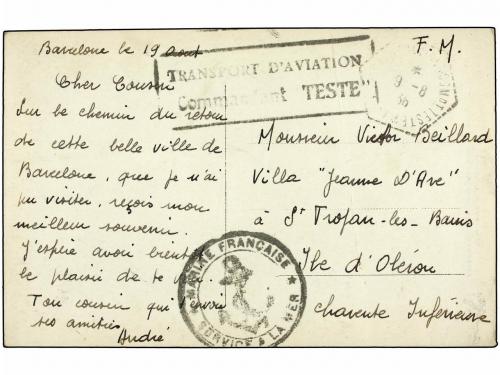 Barcelone le 19 Aout
F. M.
TRANSPORT D'AVIATION
Commandant TESTE"
9 -8
36
Cher Cousin
Sur le chemin du retour
de cette belle ville de
Barcelone, que je n'ai
pu visiter, reçois mon
meilleur souvenir.
J'espère avoir bientôt
le plaisir de te voir.
Ton cousin qui t'envoie
ses amitiés
André
Monsieur Victor Beillard
Villa "Jeanne D'Arc"
à St Trojan-les-Bains
Ile d'Oléron
Charente Inférieure
MARINE FRANÇAISE
SERVICE A LA MER